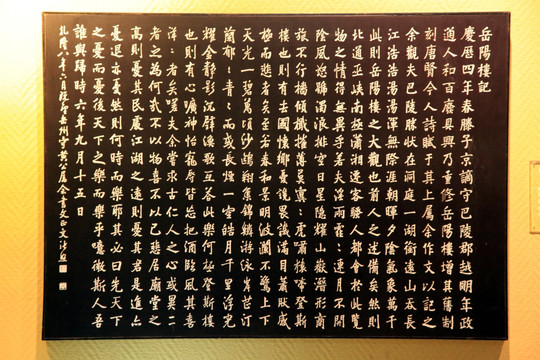 岳陽樓記
慶曆四年春滕子京謫守巴陵郡越明年政
通人和百廢具興乃重修岳陽樓增其舊制
刻唐賢今人詩賦于其上屬余作文以記之
余觀夫巴陵勝狀在洞庭一湖銜遠山吞長
江浩浩湯湯渾無際涯朝暉夕陰氣象萬千
此則岳陽樓之大觀也前人之述備矣然則
北通巫峽南極瀟湘遷客騷人都會於此覽
物之情得無異乎若夫淫雨霏霏連月不開
陰風怒號濁浪排空日星隱耀山嶽潛形商
旅不行檣傾楫摧薄暮冥冥虎嘯猿啼登斯
樓也則有去國懷鄉憂讒畏譏滿目蕭然感
極而悲者矣至若春和景明波瀾不驚上下
天光一碧萬頃沙鷗翔集錦鱗游泳岸芷汀
蘭郁々青々而或長煙一空皓月千里浮光
耀金靜影沉璧漁歌互答此樂何極登斯樓
也則有心曠神怡寵辱皆忘把酒臨風其喜
洋々者矣嗟夫余嘗求古仁人之心或異二
者之為何哉不以物喜不以己悲居廟堂之
高則憂其民處江湖之遠則憂其君是進亦
憂退亦憂然則何時而樂耶其必曰先天下
之憂而憂後天下之樂而樂乎噫微斯人吾
誰與歸時六年九月十五日
乾隆八年六月既望岳州守黃公屬余書文正文